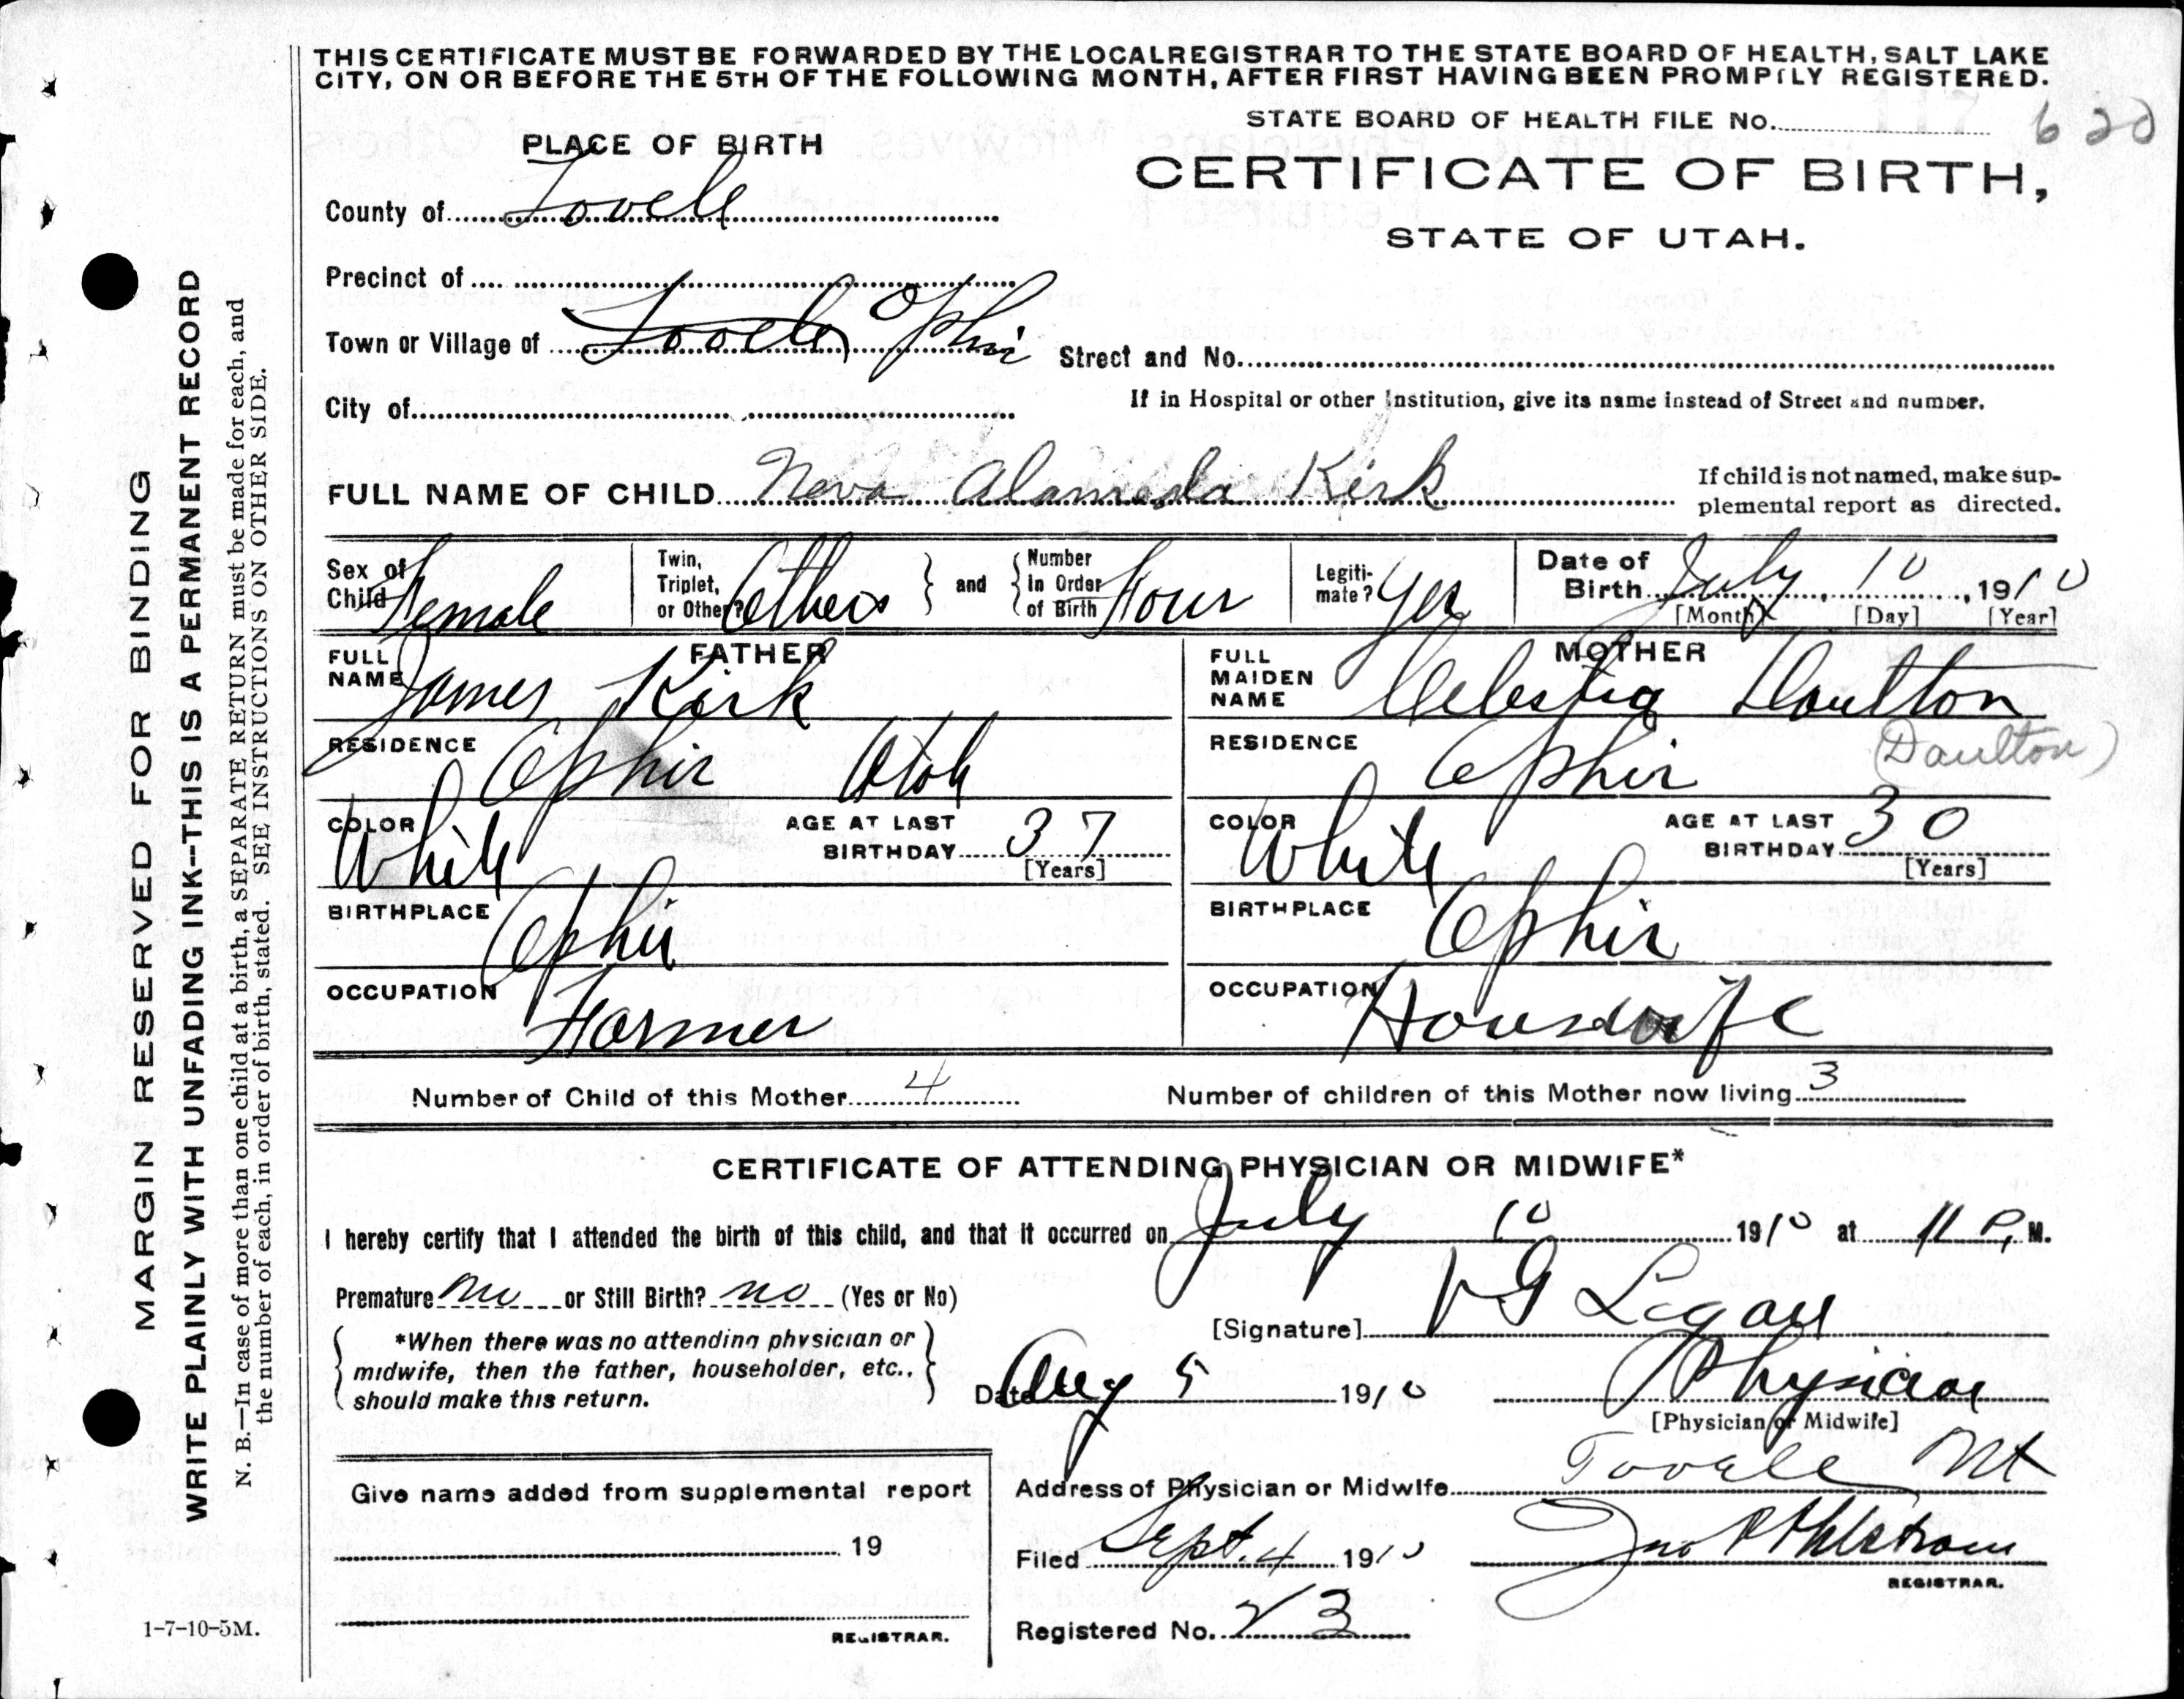 THIS CERTIFICATE MUST BE FORWARDED BY THE LOCAL REGISTRAR TO THE STATE BOARD OF HEALTH, SALT LAKE
CITY, ON OR BEFORE THE 5TH OF THE FOLLOWING MONTH, AFTER FIRST HAVING BEEN PROMPTLY REGISTERED.
STATE BOARD OF HEALTH FILE No. 620
PLACE OF BIRTH
CERTIFICATE OF BIRTH,
STATE OF UTAH.
County of Tooele
Precinct of
Town or Village of Tooele Ophir
Street and No.
City of
If in Hospital or other Institution, give its name instead of Street and number.
FULL NAME OF CHILD Neva Alameda Kirk
If child is not named, make sup-
plemental report as directed.
Sex of Child Female
Twin, Triplet, or Other? Others
and
Number In Order of Birth Four
Legiti-mate? Yes
Date of Birth July 10, 1910
[Month] [Day] [Year]
FATHER
FULL NAME James Kirk
RESIDENCE Ophir Utah
COLOR White
AGE AT LAST BIRTHDAY 37
[Years]
BIRTHPLACE Ophir
OCCUPATION Farmer
MOTHER
FULL MAIDEN NAME Celestia Doulton
(Daulton)
RESIDENCE Ophir
COLOR White
AGE AT LAST BIRTHDAY 30
[Years]
BIRTHPLACE Ophir
OCCUPATION Housewife
Number of Child of this Mother 4
Number of children of this Mother now living 3
CERTIFICATE OF ATTENDING PHYSICIAN OR MIDWIFE*
I hereby certify that I attended the birth of this child, and that it occurred on July 10 1910 at 11 P. M.
Premature no or Still Birth? no (Yes or No)
*When there was no attending physician or
midwife, then the father, householder, etc.,
should make this return.
[Signature]
Date Aug 5 1910
Physician
[Physician or Midwife]
Address of Physician or Midwife Tooele Ut
Filed Sept. 4 1910
Jno P Ahlstrom
REGISTRAR.
Registered No. 23
Give name added from supplemental report
19
REGISTRAR.
1-7-10-5M.
MARGIN RESERVED FOR BINDING
WRITE PLAINLY WITH UNFADING INK--THIS IS A PERMANENT RECORD
N. B.—In case of more than one child at a birth, a SEPARATE RETURN must be made for each, and
the number of each, in order of birth, stated. SEE INSTRUCTIONS ON OTHER SIDE.